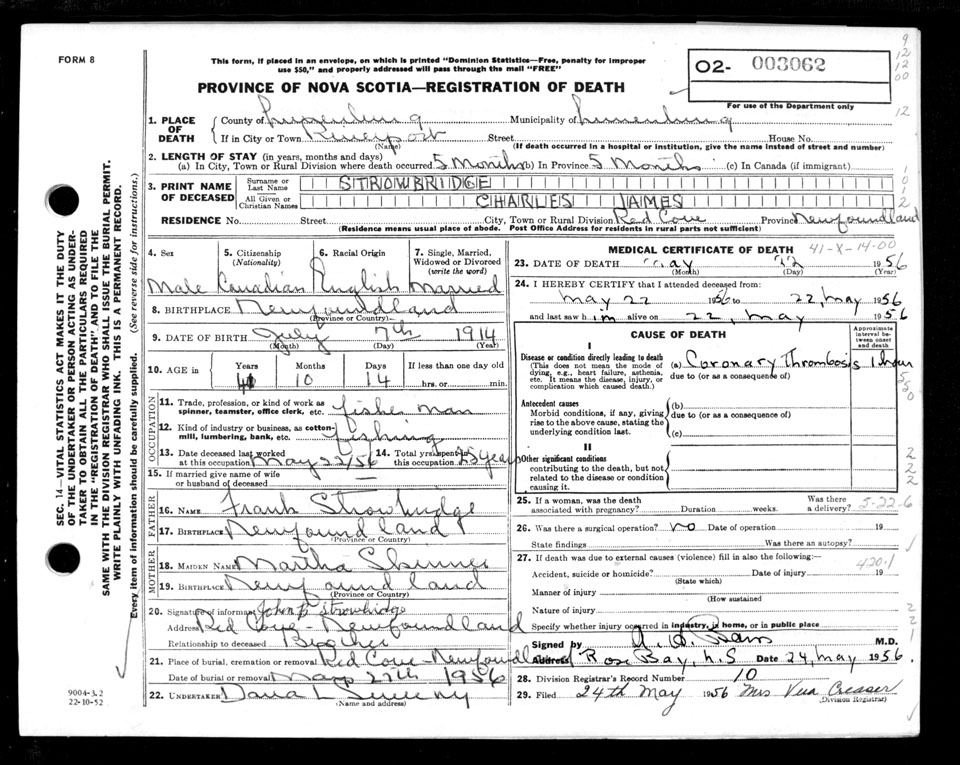 FORM 8
This form, if placed in an envelope, on which is printed "Dominion Statistics—Free, penalty for improper
use $50," and properly addressed will pass through the mail "FREE"
02- 003062
For use of the Department only
PROVINCE OF NOVA SCOTIA—REGISTRATION OF DEATH
1. PLACE OF DEATH
County of Lunenburg Municipality of Lunenburg
If in City or Town Riverport Street House No.
(Name) (If death occurred in a hospital or institution, give the name instead of street and number)
2. LENGTH OF STAY (in years, months and days)
(a) In City, Town or Rural Division where death occurred 5 Months (b) In Province 5 Months (c) In Canada (if immigrant)
3. PRINT NAME OF DECEASED
Surname or Last Name STROWBRIDGE
All Given or Christian Names CHARLES JAMES
RESIDENCE No. Street City, Town or Rural Division Red Cove Province Newfoundland
(Residence means usual place of abode. Post Office Address for residents in rural parts not sufficient)
4. Sex 5. Citizenship (Nationality) 6. Racial Origin 7. Single, Married, Widowed or Divorced (write the word)
Male Canadian English Married
8. BIRTHPLACE Newfoundland
(Province or Country)
9. DATE OF BIRTH July 7th 1914
(Month) (Day) (Year)
10. AGE Years Months Days If less than one day old
41 10 14 hrs. or min.
OCCUPATION
11. Trade, profession, or kind of work as
spinner, teamster, office clerk, etc. fisher man
12. Kind of industry or business, as cotton-
mill, lumbering, bank, etc. fishing
13. Date deceased last worked
at this occupation May 22/56
14. Total yrs. spent in
this occupation 25 years
15. If married give name of wife
or husband of deceased —
FATHER
16. NAME Frank Strowbridge
17. BIRTHPLACE Newfoundland
(Province or Country)
MOTHER
18. MAIDEN NAME Martha Skinner
19. BIRTHPLACE Newfoundland
(Province or Country)
20. Signature of informant John B Strowbridge
Address Red Cove - Newfoundland
Relationship to deceased Brother
21. Place of burial, cremation or removal Red Cove - Newfoundland
Date of burial or removal 1956
22. UNDERTAKER Dana L Sweeny
(Name and address)
MEDICAL CERTIFICATE OF DEATH 41-X-14-00
23. DATE OF DEATH May 22 1956
(Month) (Day) (Year)
24. I HEREBY CERTIFY that I attended deceased from:
May 22 1956 to 22, May 1956
and last saw him alive on 22, May 1956
CAUSE OF DEATH
Approximate interval between onset and death
I
Disease or condition directly leading to death
(This does not mean the mode of
dying, e.g., heart failure, asthenia,
etc. It means the disease, injury, or
complication which caused death.)
(a) Coronary Thrombosis 1 hour
due to (or as a consequence of)
Antecedent causes
Morbid conditions, if any, giving
rise to the above cause, stating the
underlying condition last.
(b)
due to (or as a consequence of)
(c)
II
Other significant conditions
contributing to the death, but not
related to the disease or condition
causing it.
25. If a woman, was the death
associated with pregnancy? Duration weeks. Was there a delivery?
5-22-6
26. Was there a surgical operation? No Date of operation 19
State findings Was there an autopsy?
27. If death was due to external causes (violence) fill in also the following:—
420.1
Accident, suicide or homicide? Date of injury 19
(State which)
Manner of injury
(How sustained
Nature of injury
Specify whether injury occurred in industry, in home, or in public place
Signed by M.D.
Address Rose Bay, N.S Date 24, May 1956.
28. Division Registrar's Record Number 10
29. Filed 24th May 1956 Mrs Vera Creaser
(Division Registrar)
SEC. 14—VITAL STATISTICS ACT MAKES IT THE DUTY
OF THE UNDERTAKER OR PERSON ACTING AS UNDER-
TAKER TO OBTAIN ALL THE PARTICULARS REQUIRED
IN THE "REGISTRATION OF DEATH" AND TO FILE THE
SAME WITH THE DIVISION REGISTRAR WHO SHALL ISSUE THE BURIAL PERMIT.
WRITE PLAINLY WITH UNFADING INK. THIS IS A PERMANENT RECORD.
Every item of information should be carefully supplied. (See reverse side for instructions.)
9004-3.2
22-10-52